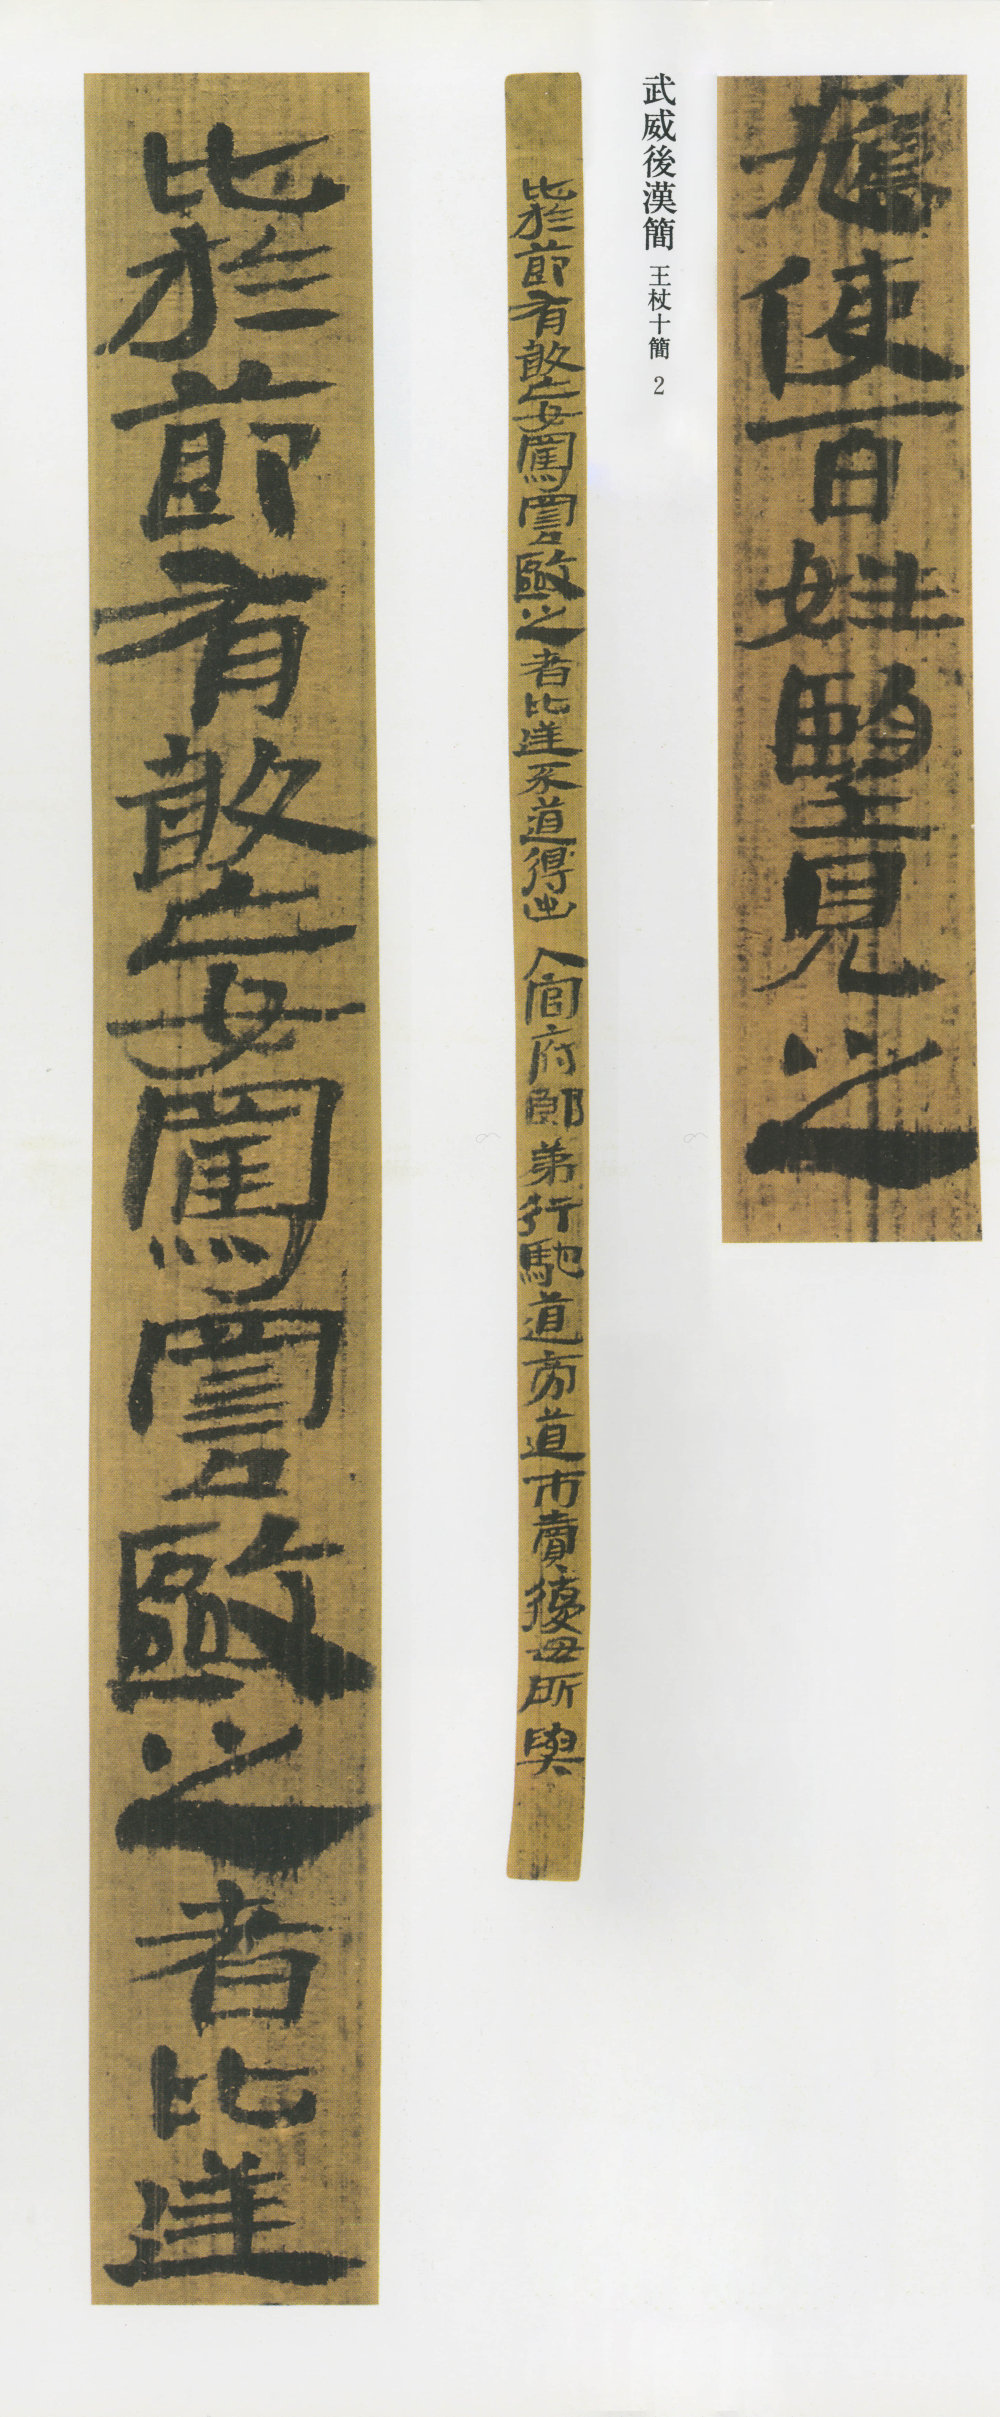 鳩使百姓望見之
武威後漢簡 王杖十簡 2
比於節有敢妄罵詈毆之者比逆不道得出入官府郎弟行馳道旁道市賣復毋所與
比於節有敢妄罵詈毆之者比逆